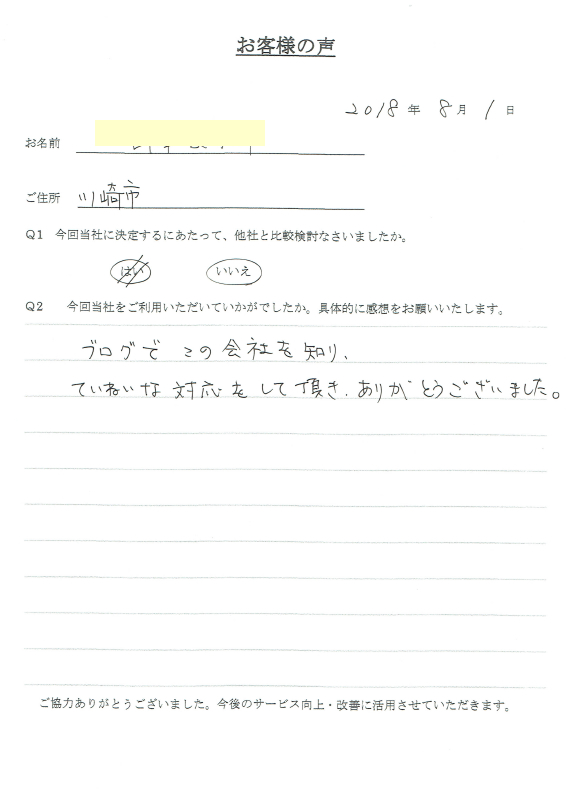 お客様の声
2018年 8月 1日
お名前
ご住所 川崎市
Q1 今回当社に決定するにあたって、他社と比較検討なさいましたか。
はい いいえ
Q2 今回当社をご利用いただいていかがでしたか。具体的に感想をお願いいたします。
ブログでこの会社を知り、
ていねいな対応をして頂き、ありがとうございました。
ご協力ありがとうございました。今後のサービス向上・改善に活用させていただきます。